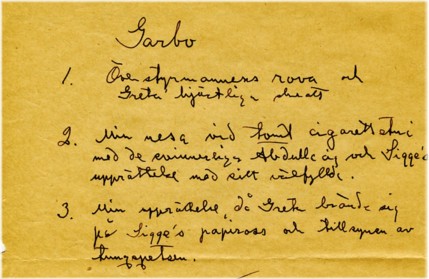 Garbo
1. Överstyrmannens rova och
Greta hjärtliga skratt
2. Min resa vid tomt cigarettetui
med de svinnerliga Abdulla cig och Sigge's
upprättelse med sitt välfyllda.
3. Min upprättelse då Greta brände sig
på Sigge's papiross och tillsynen av